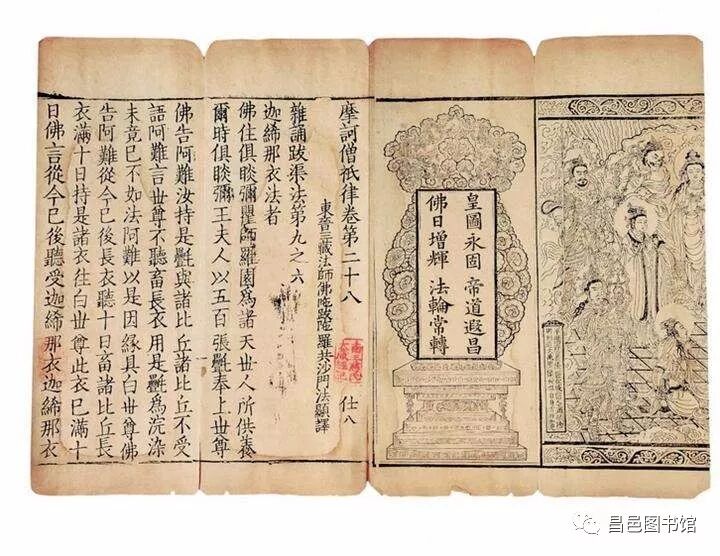 皇圖永固 帝道遐昌
佛日增輝 法輪常轉
摩訶僧祇律卷第二十八 仕八
東晉三藏法師佛陁跋陁羅共沙門法顯譯
雜誦跋渠法第九之六
迦絺那衣法者
佛住俱睒彌瞿師羅園爲諸天世人所供養
爾時俱睒彌王夫人以五百張氎奉上世尊
佛告阿難汝持是氎與諸比丘諸比丘不受
語阿難言世尊不聽畜長衣用是氎爲浣染
未竟已不如法阿難以是因緣具白世尊佛
告阿難從今已後長衣聽十日畜諸比丘長
衣滿十日持是諸衣往白世尊此衣已滿十
日佛言從今已後聽受迦絺那衣迦絺那衣
昌邑图书馆